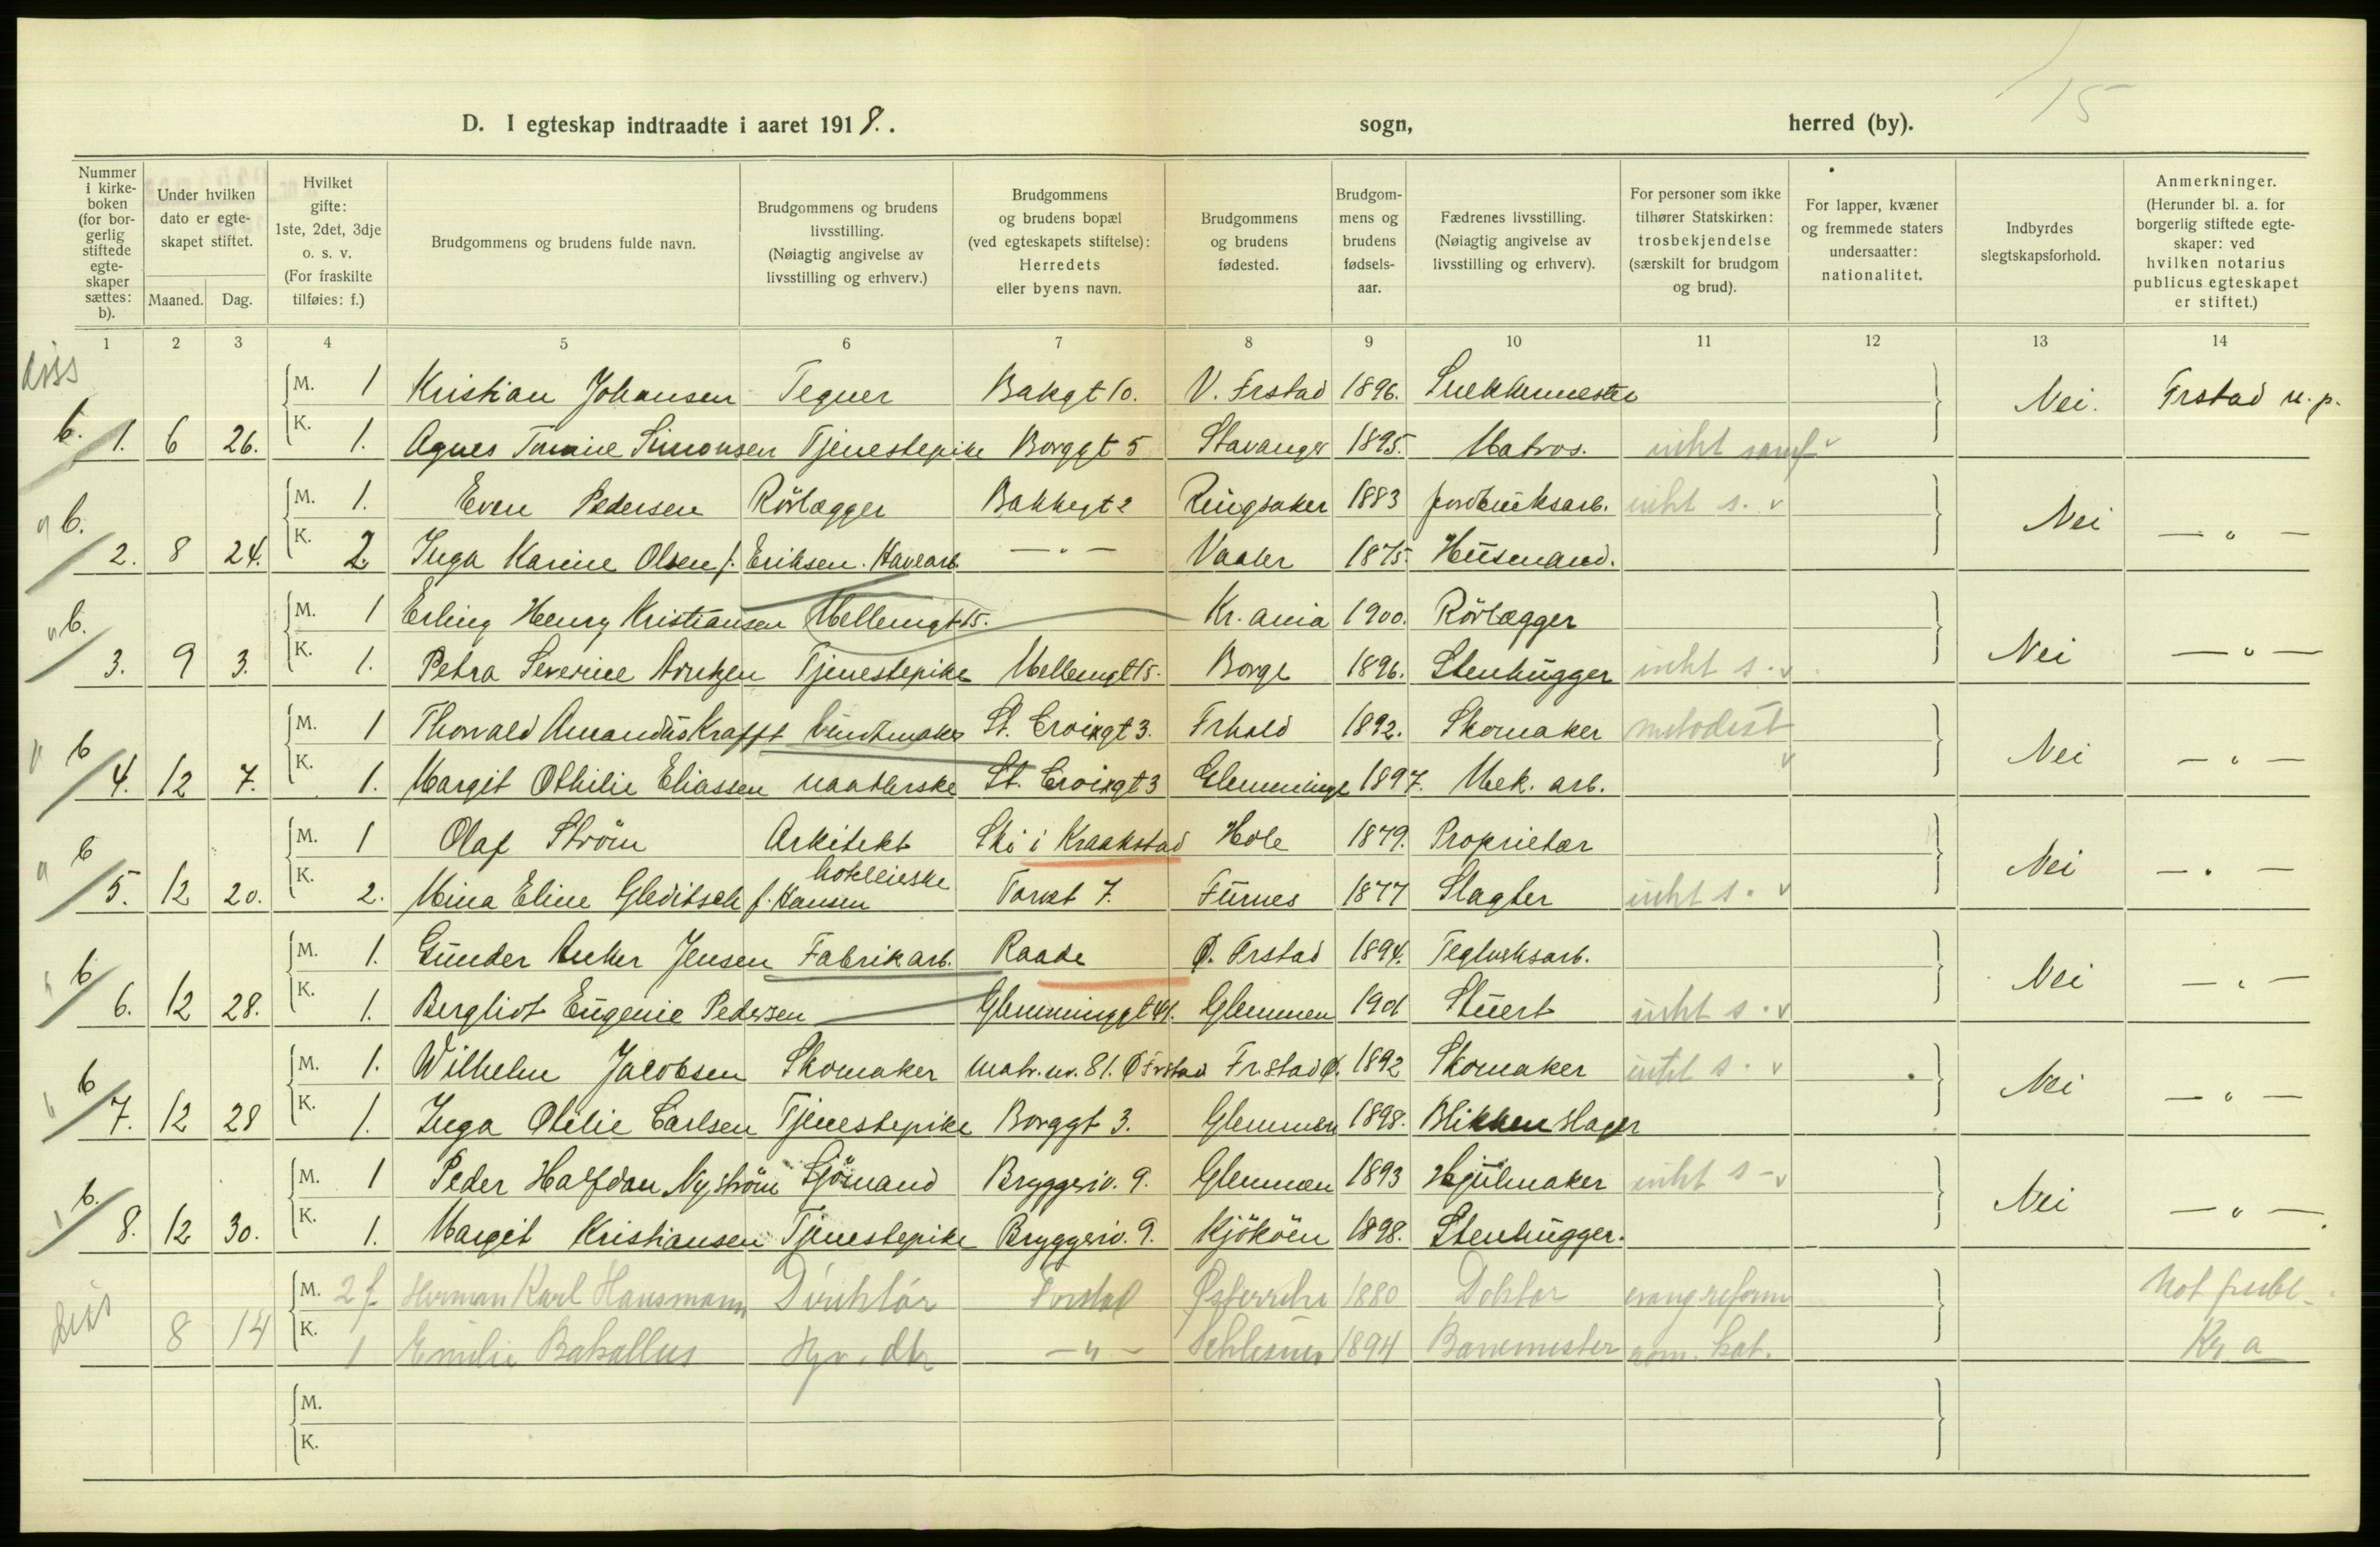 15
D. I egteskap indtraadte i aaret 1918. sogn, herred (by).
Nummer i kirkeboken (for borgerlig stiftede egteskaper sættes: b).
Under hvilken dato er egteskapet stiftet. Maaned. Dag.
Hvilket gifte: 1ste, 2det, 3dje o. s. v. (For fraskilte tilføies: f.)
Brudgommens og brudens fulde navn.
Brudgommens og brudens livsstilling. (Nøiagtig angivelse av livsstilling og erhverv.)
Brudgommens og brudens bopæl (ved egteskapets stiftelse): Herredets eller byens navn.
Brudgommens og brudens fødested.
Brudgommens og brudens fødselsaar.
Fædrenes livsstilling. (Nøiagtig angivelse av livsstilling og erhverv).
For personer som ikke tilhører Statskirken: trosbekjendelse (særskilt for brudgom og brud).
For lapper, kvæner og fremmede staters undersaatter: nationalitet.
Indbyrdes slegtskapsforhold.
Anmerkninger. (Herunder bl. a. for borgerlig stiftede egteskaper: ved hvilken notarius publicus egteskapet er stiftet.)
1 2 3 4 5 6 7 8 9 10 11 12 13 14
diss
M. 1 Kristian Johansen Tegner Bakgt 10. V. Frstad 1896. Nei. Frstad n. p.
b. 1. 6 26. K. 1. Agnes Simonsen Tjenestepike Borggt 5 Stavanger 1895. Matros. intet samf
M. 1. Even Pedersen Rörlægger Bakkegt 2 Ringsaker 1883 Jordbruksarb. intet s. Nei — " —
b. 2. 8 24. K. 2 Inga Karine Olsen f. Eriksen. Havearb — " — Vaaler 1875. Husmand.
M. 1 Erling Henry Kristiansen Mellemgt 15. Kr.ania 1900. Rörlægger
b. 3. 9 3. K. 1. Petra Severine Arntzen Tjenestepike Mellemgt 15. Borge 1896. Stenhugger intet s. Nei — " —
M. 1 Thorvald Amandus Krafft Buntmaker St. Croixgt 3. Frhald 1892. Skomaker metodist Nei — " —
b 4. 12 7. K. 1. Margit Othilie Eliassen naatlerske St. Croixgt 3 Glemminge 1897. Mek. arb.
M. 1 Olaf Ström Arkitekt Ski i Kraakstad Hole 1879. Proprietær
b 5. 12 20. K. 2. Mina Eline Gleditsch f. Hansen hotelleierske Torvet 7. Furnes 1877 Slagter intet s. Nei — " —
M. 1. Gunder Anker Jensen Fabrikarb. Raade Ø. Frstad 1894. Teglverksarb.
b 6. 12 28. K. 1. Bergliot Eugenie Pedersen Glemminggt 41. Glemmen 1901 Stuert intet s. Nei — " —
M. 1. Wilhelm Jacobsen Skomaker matr. nr. 81. Ø Frstad Fr.stad Ø. 1892 Skomaker intet s. Nei — " —
b 7. 12 28 K. 1. Inga Otilie Carlsen Tjenestepike Borggt 3. Glemmen 1898. Blikkenslager
M. 1 Peder Halfdan Nyström Sjömand Bryggeriv. 9. Glemmen 1893 Hjulmaker intet s Nei — " —
b. 8. 12 30. K. 1. Margit Kristiansen Tjenestepike Bryggeriv. 9. Kjököen 1898. Stenhugger.
diss
M. 2 f. Herman Karl Hausmann Direktör Frstad Østerrike 1880 Doktor evang reform Not publ
8 14 K. 1 Emilie Hjv. dtr — " — Schlesien 1894 Banemester rom. kat. Kr. a
M.
K.